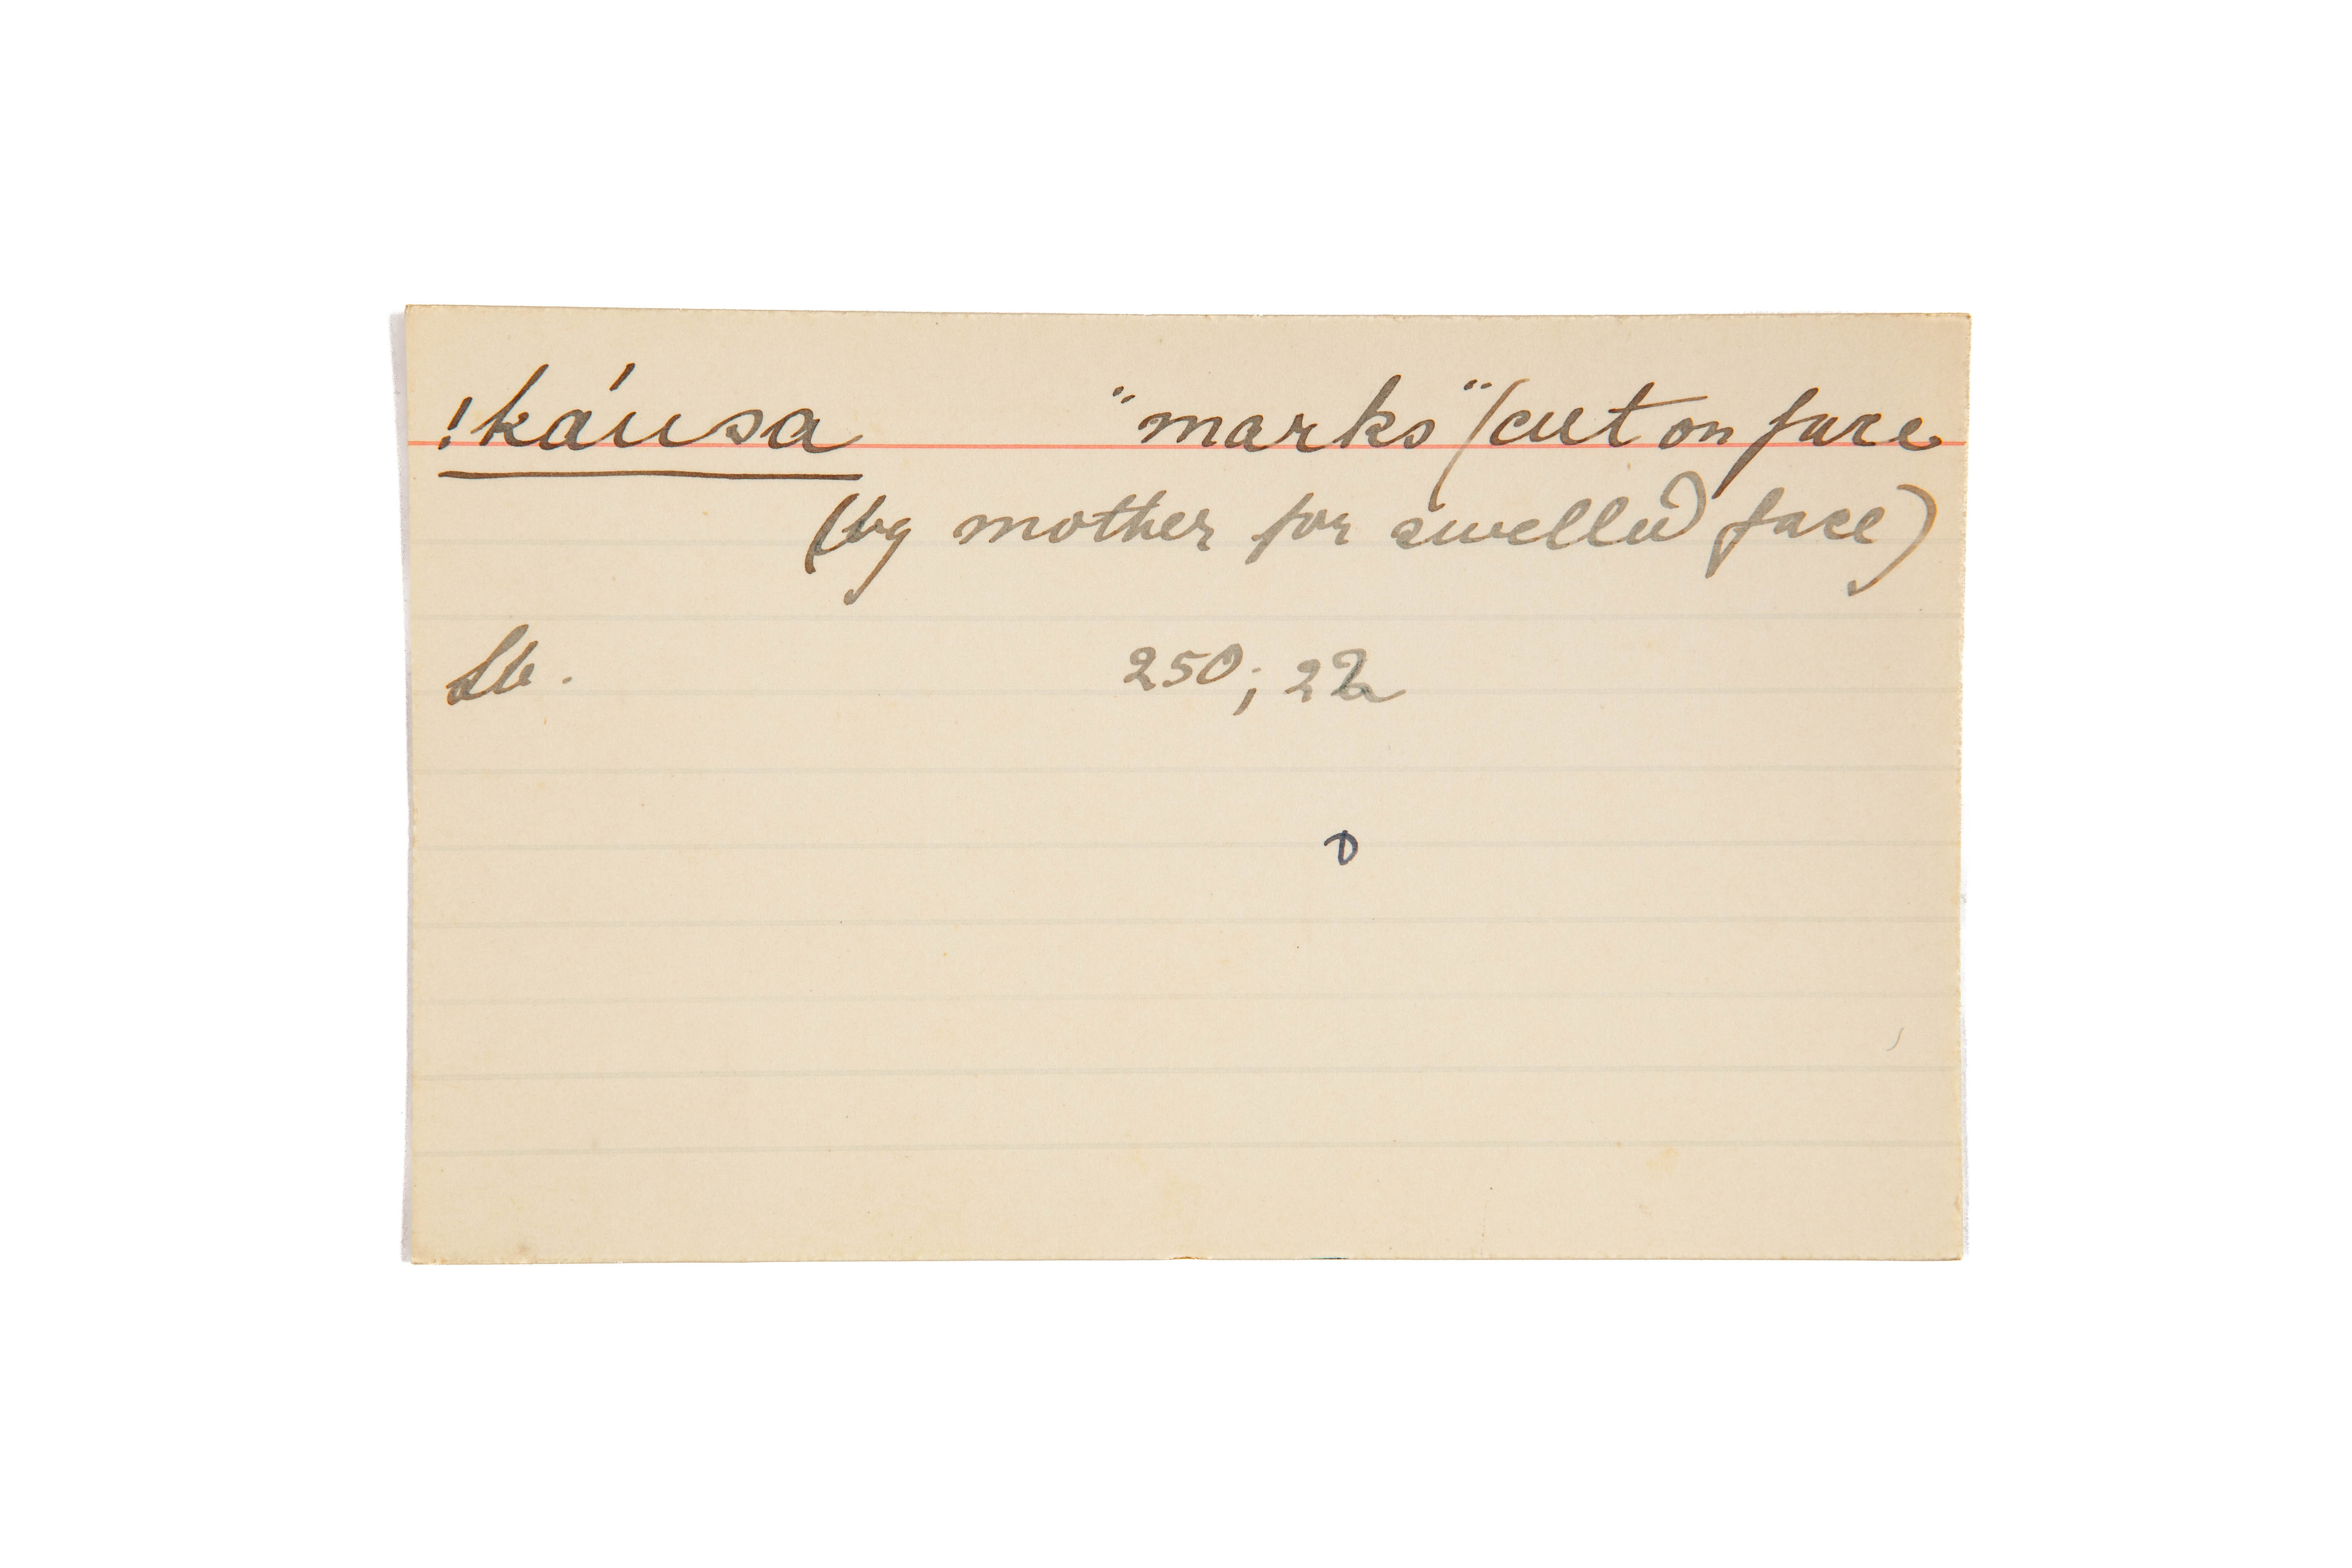 !káusa "marks" (cut on face
(by mother for swelled face)
Lb. 250; 22
D